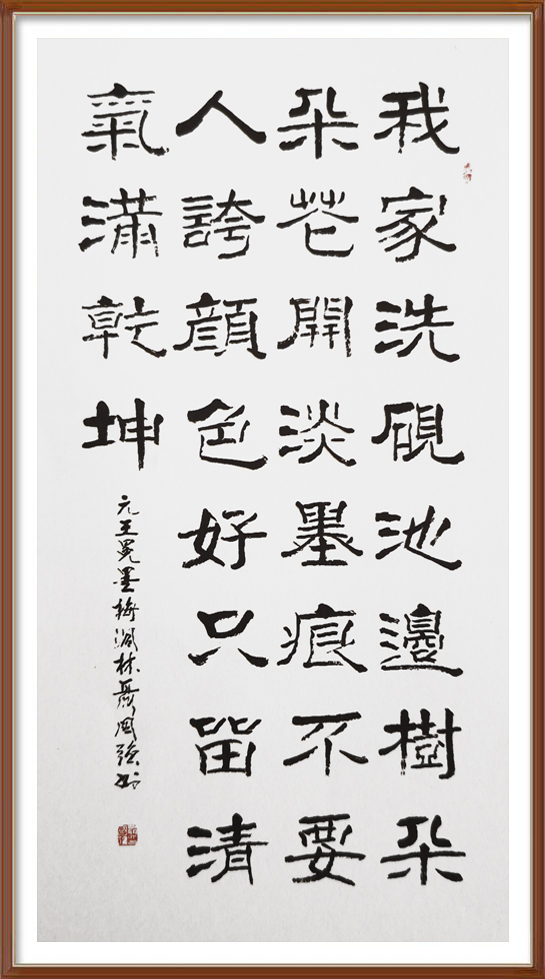 我家洗硯池邊樹朵
朵花開淡墨痕不要
人誇顔色好只畱清
氣滿乾坤
元王冕墨梅林聂强书